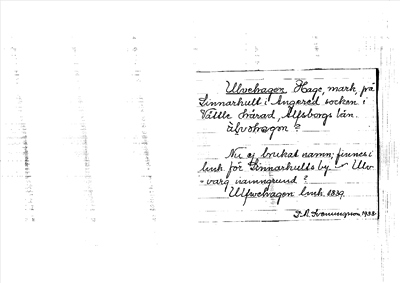 Ulvehagen Hage, mark, på
Linnarhult i Angered socken i
Vättle härad, Älfsborgs län.
ülvəhagən ?
Nu ej brukat namn; finnes i
link för Linnarhults by. Ulv
-varg namngrund ?
Ulfwehagen link. 1839.
1938